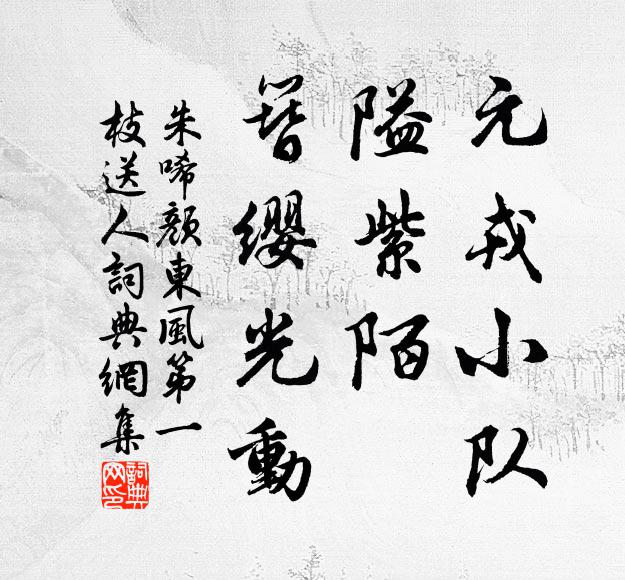 元戎小队
隘紫陌
簪缨光動
朱晞颜東風第一
枝送人詞典網集
詞典
网印